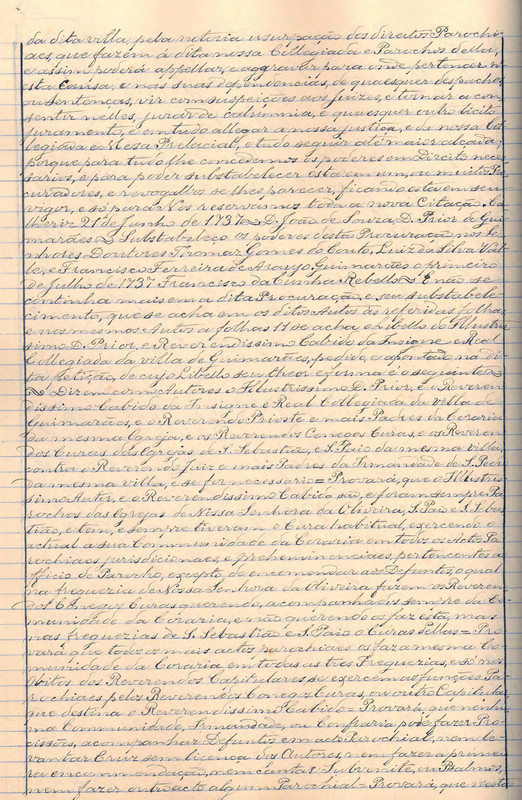 da dita villa, pela notoria usurpação dos direitos Parochi-
aes, que fazem á dita nossa Collegiada e Parochos della,
e assim poderá appellar, e aggravar para onde pertencer n'
esta Causa, e nas suas dependencias, de quaesquer despachos,
ou sentenças, vir com suspeições aos juizes, e tornar a con-
sentir nelles, jurar de calumnia, e quaesquer outro licito
juramento, e em tudo allegar a nossa justiça, e da nossa Col-
legiada e Mesa Prelacial, e tudo seguir até maior alçada;
porque para tudo lhe concedemos os poderes em Direito neces-
sarios, e para poder substabelecer esta em um, ou muitos Pro-
curadores, e revogal-los se lhes parecer, ficando esta em seu
vigor, e só para Nós reservamos toda a nova Citação.
21 de Junho de 1737 D. João de Souza, D. Prior de Gui-
marães Substabeleço os poderes desta Procuração nos Se-
nhores Doutores Thomaz Gomes do Couto, Luiz da Silva Val-
le, e Francisco Ferreira de Araujo, Guimarães o primeiro
de Julho de 1737 Francisco da Cunha Rebello E não se
continha mais em a dita Procuração, e seu substabele-
cimento, que se acha em os ditos Autos ás referidas folhas
e nos mesmos Autos a folhas 11 se acha o Libello do Illustris-
simo D. Prior, e Reverendissimo Cabido da Insigne e Real
Collegiada da villa de Guimarães, pedido, e apontado na di-
ta petição, de cujo Libello seu theor e forma é o seguinte
Dizem como Autores o Illustrissimo D. Prior, e o Reveren-
dissimo Cabido da Insigne e Real Collegiada da Villa de
Guimarães, e o Reverendo Prioste e mais Padres da Coraria
da mesma Igreja, e os Reverendos Conegos Curas, e os Reveren-
dos Curas das Igrejas de S. Sebastião, e S. Paio da mesma villa,
contra o Reverendo Juiz e mais Padres da Irmandade de S. Pedro
da mesma villa, e se for necessario = Provará, que o Illustris-
simo Autor, e o Reverendissimo Cabido são, e foram sempre Pa-
rochos das Igrejas de Nossa Senhora da Oliveira, S. Paio e S. Sebas-
tião, e tem, e sempre tiveram o Cura habitual, exercendo o
actual a sua Communidade da Coraria em todos os Actos Pa-
rochiaes, jurisdicionaes, e preheminenciaes, pertencentes ao
officio de Parocho, excepto de encommendar aos Defuntos, o qual
na freguezia de Nossa Senhora da Oliveira fazem os Reveren-
dos Conegos Curas querendo, acompanhados sempre da Co-
munidade da Coraria, e não querendo os faz esta, mas
nas freguezias de S. Sebastião e S. Paio o Curas dellas = Pro-
vará que todos os mais actos parochiaes os faz a mesma Co-
munidade da Coraria em todas as tres Freguezias, e só nos
Obitos dos Reverendos Capitulares se exercem as funções Pa-
rochiaes pelos Reverendos Conegos Curas, ou outro Capitular,
que destina o Reverendissimo Cabido = Provará, que nenhu-
ma Communidade, Irmandade, ou Confraria pode fazer Pro-
cissões, acompanhar Defuntos em acto Parochial, nem le-
vantar Cruz sem licença dos Autores, nem fazer a primei-
ra encommendação, nem cantar Subvenite, ou Psalmos,
nem fazer outro acto algum Parochial = Provará, que